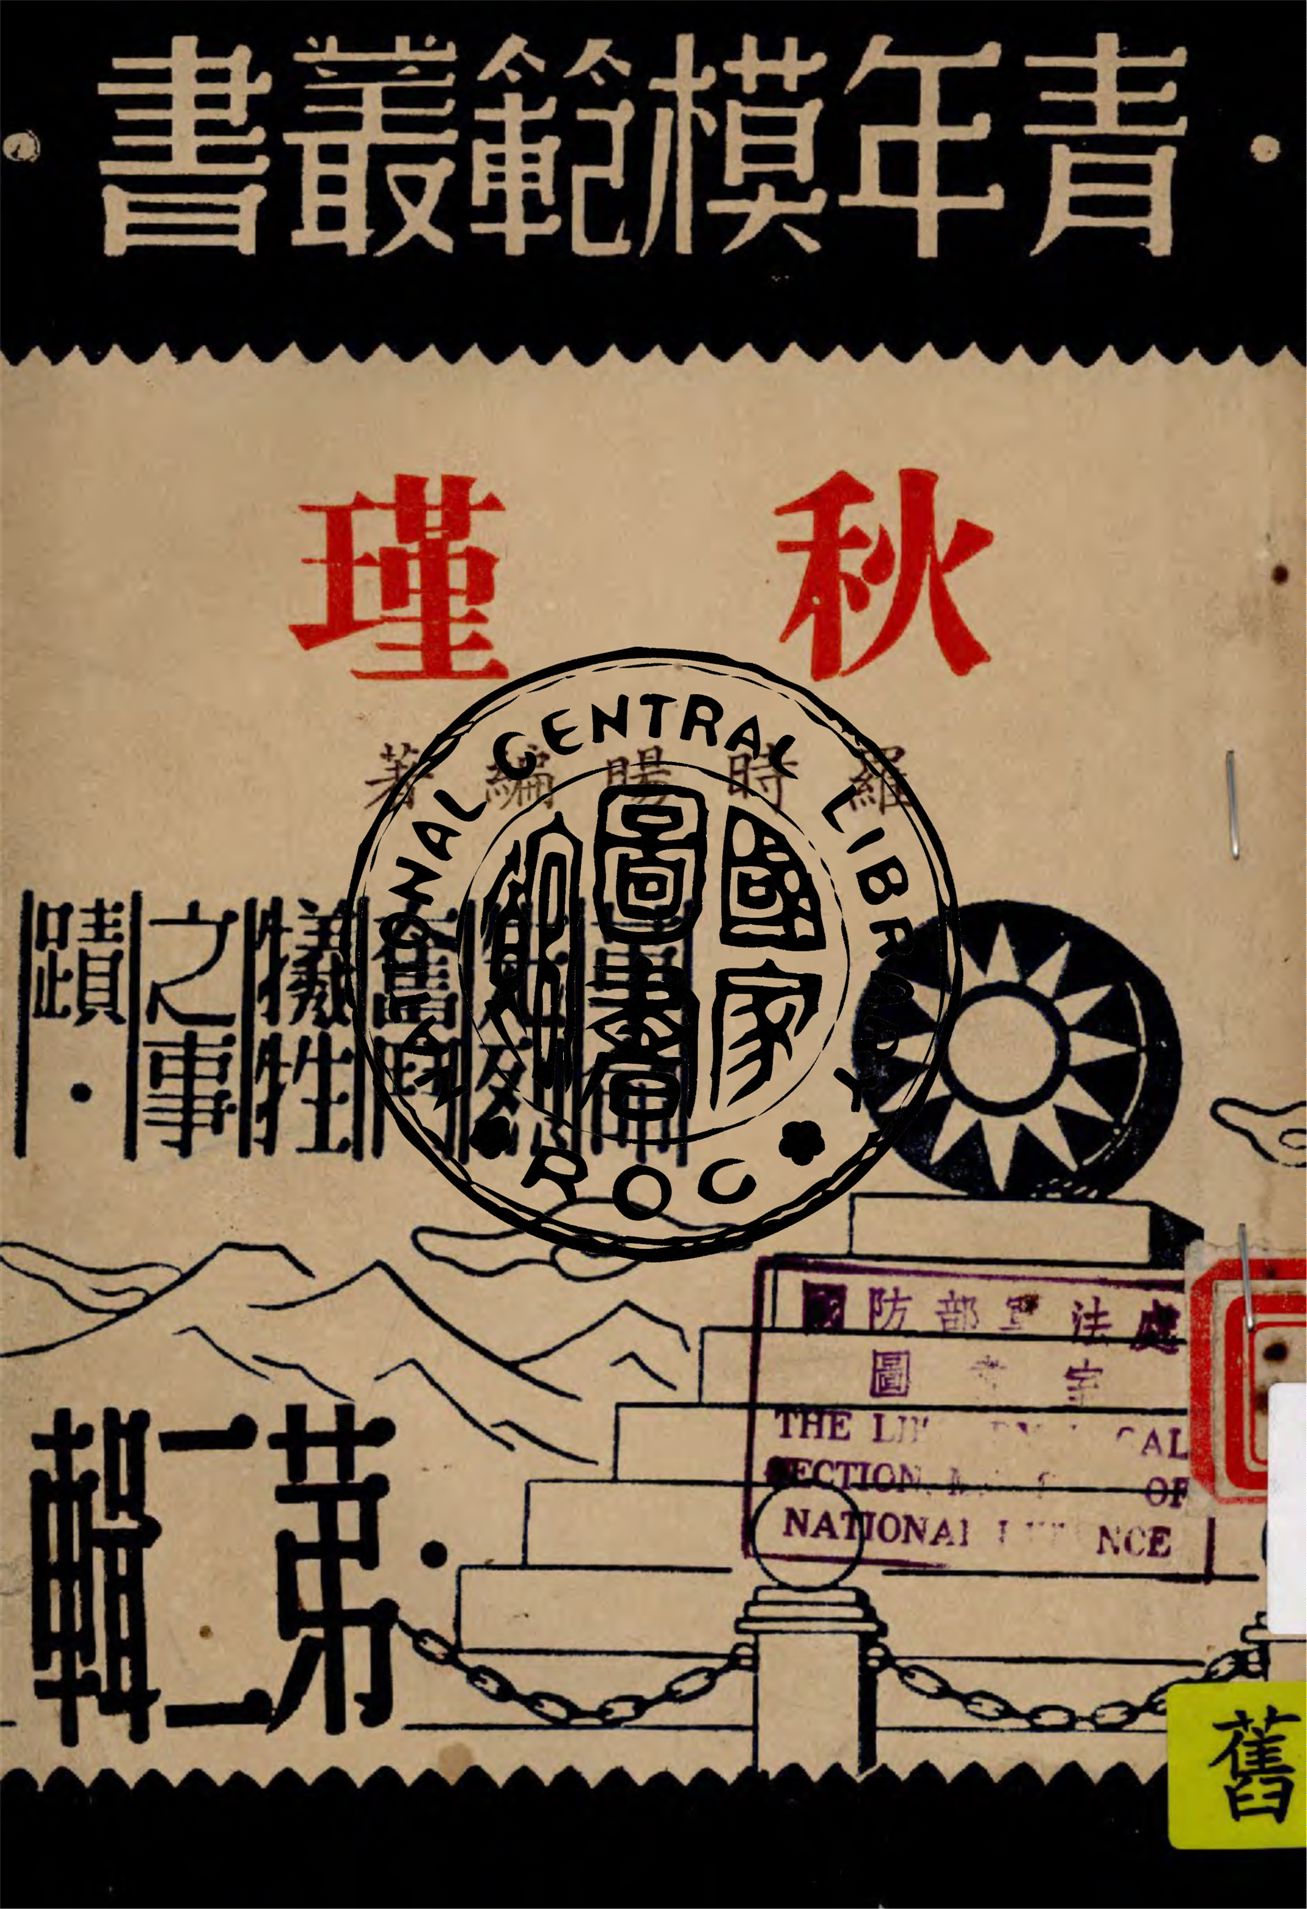 青年模範叢書
秋瑾
羅時暘編著
奮鬥
犧牲
之事
蹟
第二輯
NATIONAL CENTRAL LIBRARY
ROC
國家
圖書館
國防部軍法處
圖
室
THE
SECTION
OF
NATIONAL
舊